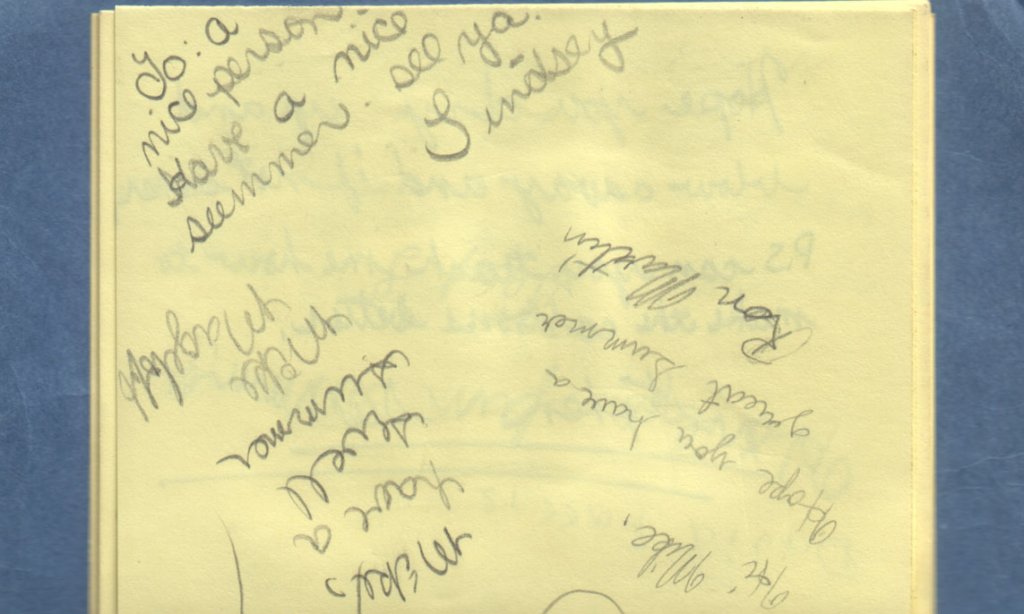 To: a
nice person.
Have a nice
summer. see ya.
Lindsey
Hi Mike,
Hope you have a
great summer
Ron Martin
Mike
have a
swell
summer
Mike